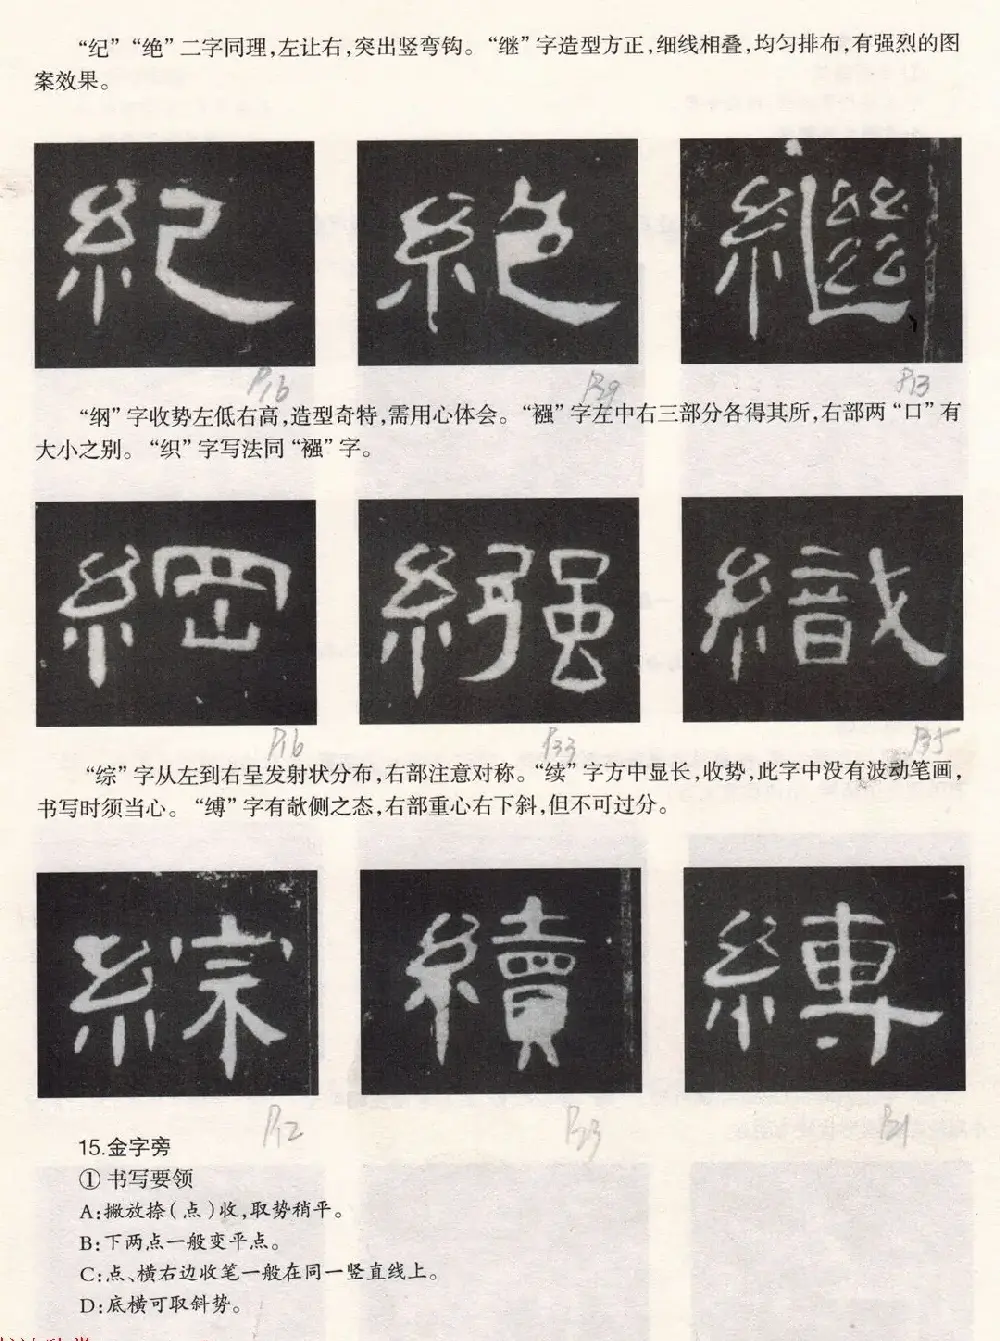 “纪”“绝”二字同理,左让右,突出竖弯钩。“继”字造型方正,细线相叠,均匀排布,有强烈的图
案效果。
紀 絶 繼
P16 P29 P13
“纲”字收势左低右高,造型奇特,需用心体会。“襁”字左中右三部分各得其所,右部两“口”有
大小之别。“织”字写法同“襁”字。
綱 繈 織
P16 P33 P35
“综”字从左到右呈发射状分布,右部注意对称。“续”字方中显长,收势,此字中没有波动笔画,
书写时须当心。“缚”字有欹侧之态,右部重心右下斜,但不可过分。
綜 續 縛
P12 P23 P21
15.金字旁
① 书写要领
A:撇放捺(点)收,取势稍平。
B:下两点一般变平点。
C:点、横右边收笔一般在同一竖直线上。
D:底横可取斜势。